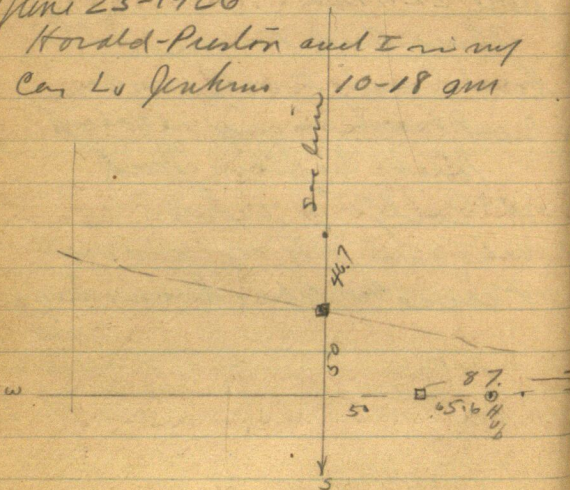 June 25-1926
Harold-Preston and I in my
Car Lv Jenkins 10-18 am
Sec line
46.7
50
W
50
65.6
87.
Hub
S